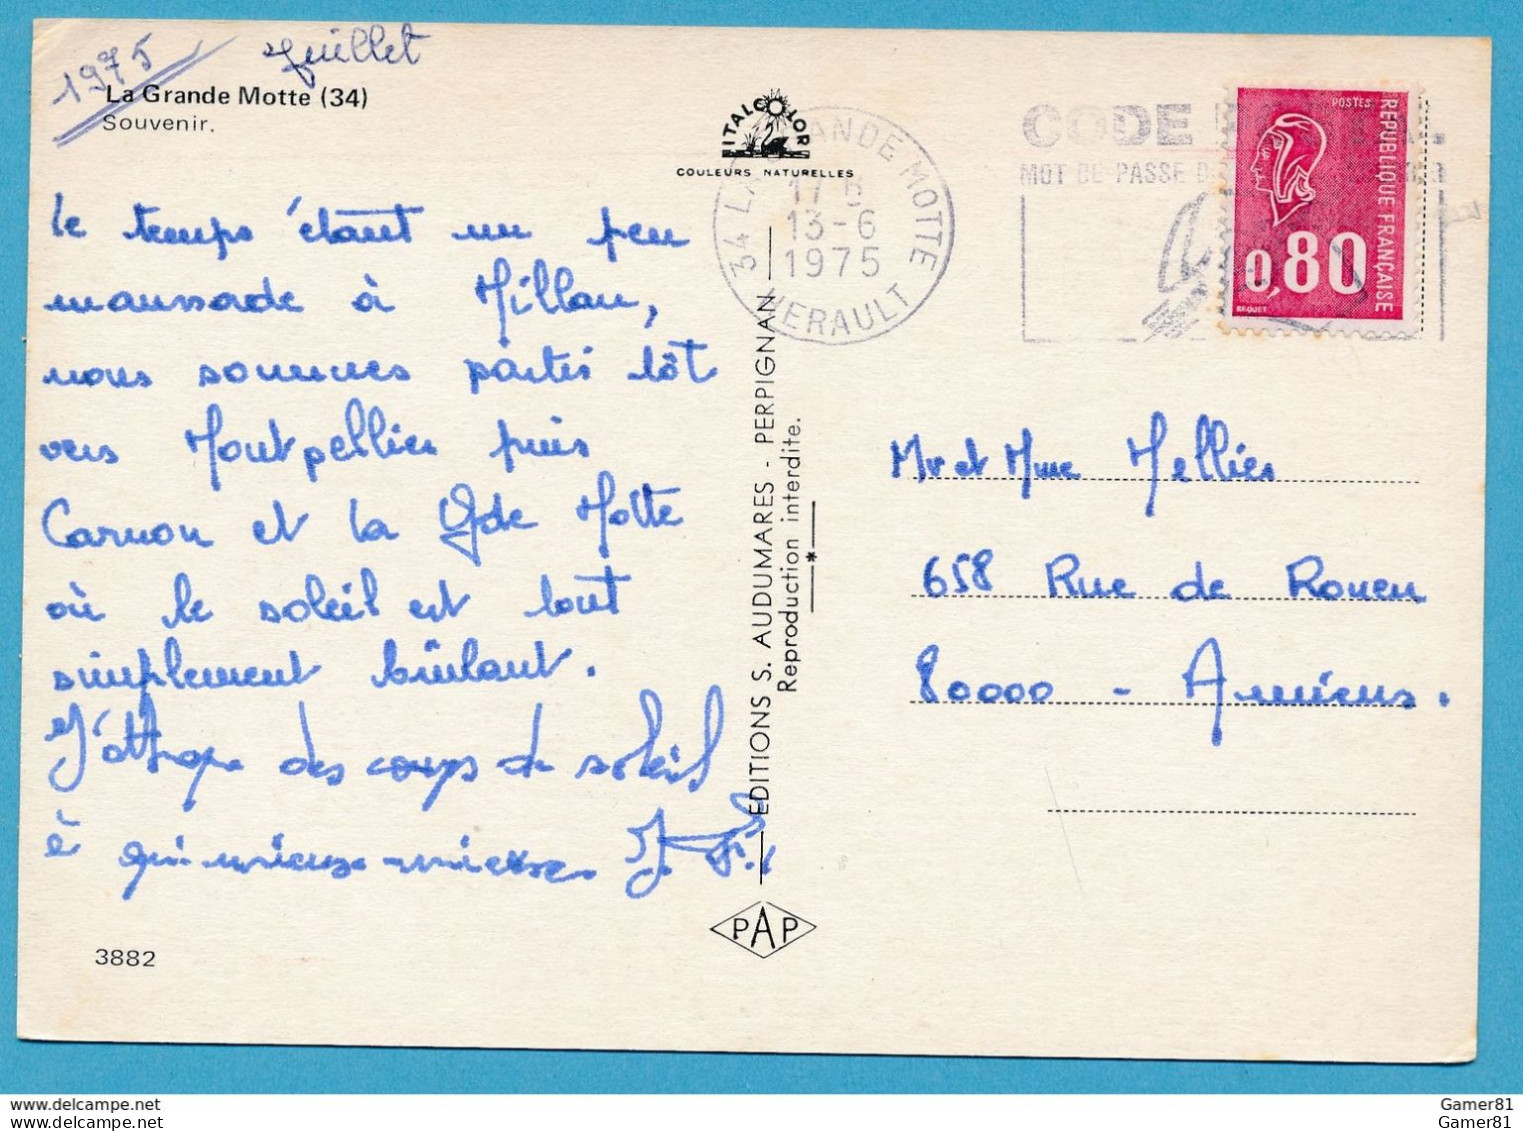 1975 Juillet
La Grande Motte (34)
Souvenir.
ITALCOLOR
COULEURS NATURELLES
le temps étant un peu
maussade à Millau,
nous sommes partis tôt
vers Montpellier puis
Carnon et la Gde Motte
où le soleil est tout
simplement brûlant.
J'attrape des coups de soleil
à qui mieux-mieux.
3882
EDITIONS S. AUDUMARES - PERPIGNAN
Reproduction interdite.
PAP
34 LA GRANDE MOTTE
17 H
13-6
1975
HERAULT
CODE
MOT DE PASSE
POSTES
REPUBLIQUE FRANÇAISE
0,80
BEQUET
Mr et Mme Mellier
658 Rue de Rouen
80000 - Amiens.
delcampe.net
delcampe.net
Gamer81
Gamer81